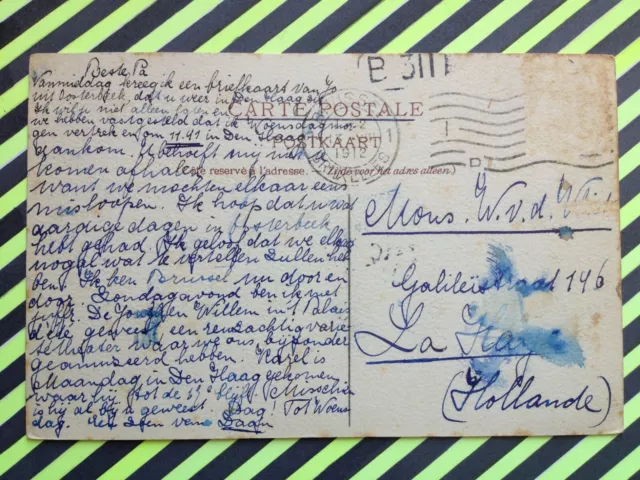 Beste Pa
Vanmiddag kreeg ik een briefkaart van U
uit Oosterbeek, dat u weer in Den Haag zit
we hebben vastgesteld dat we Woensdagmor-
gen vertrekken om 11.41 in Den Haag
aankom. U behoeft mij niet
komen afhalen
want we mochten elkaar eens
misloopen. Ik hoop dat u wat
aardige dagen in Oosterbeek
hebt gehad. Ik geloof dat we elkaar
nogal wat te vertellen zullen heb-
ben. Ik ken Brussel nu door en
door. Zondagavond ben ik met
Juffr. De Willem in 't Palais
d'été geweest, een reusachtig varie-
té theater waar we ons bijzonder
geamuseerd hebben. Karel is
Maandag in Den Haag gekomen
waar hij tot de blijft. Misschien
is hij al bij u geweest. Dag! Tot Woens-
dag. Uw Daan
CARTE POSTALE
POSTKAART
Côté réservé à l'adresse. (Zijde voor het adres alleen.)
B 3111
1912
Mons. W. v. d.
Galileïstraat 146
La Haye
(Hollande)